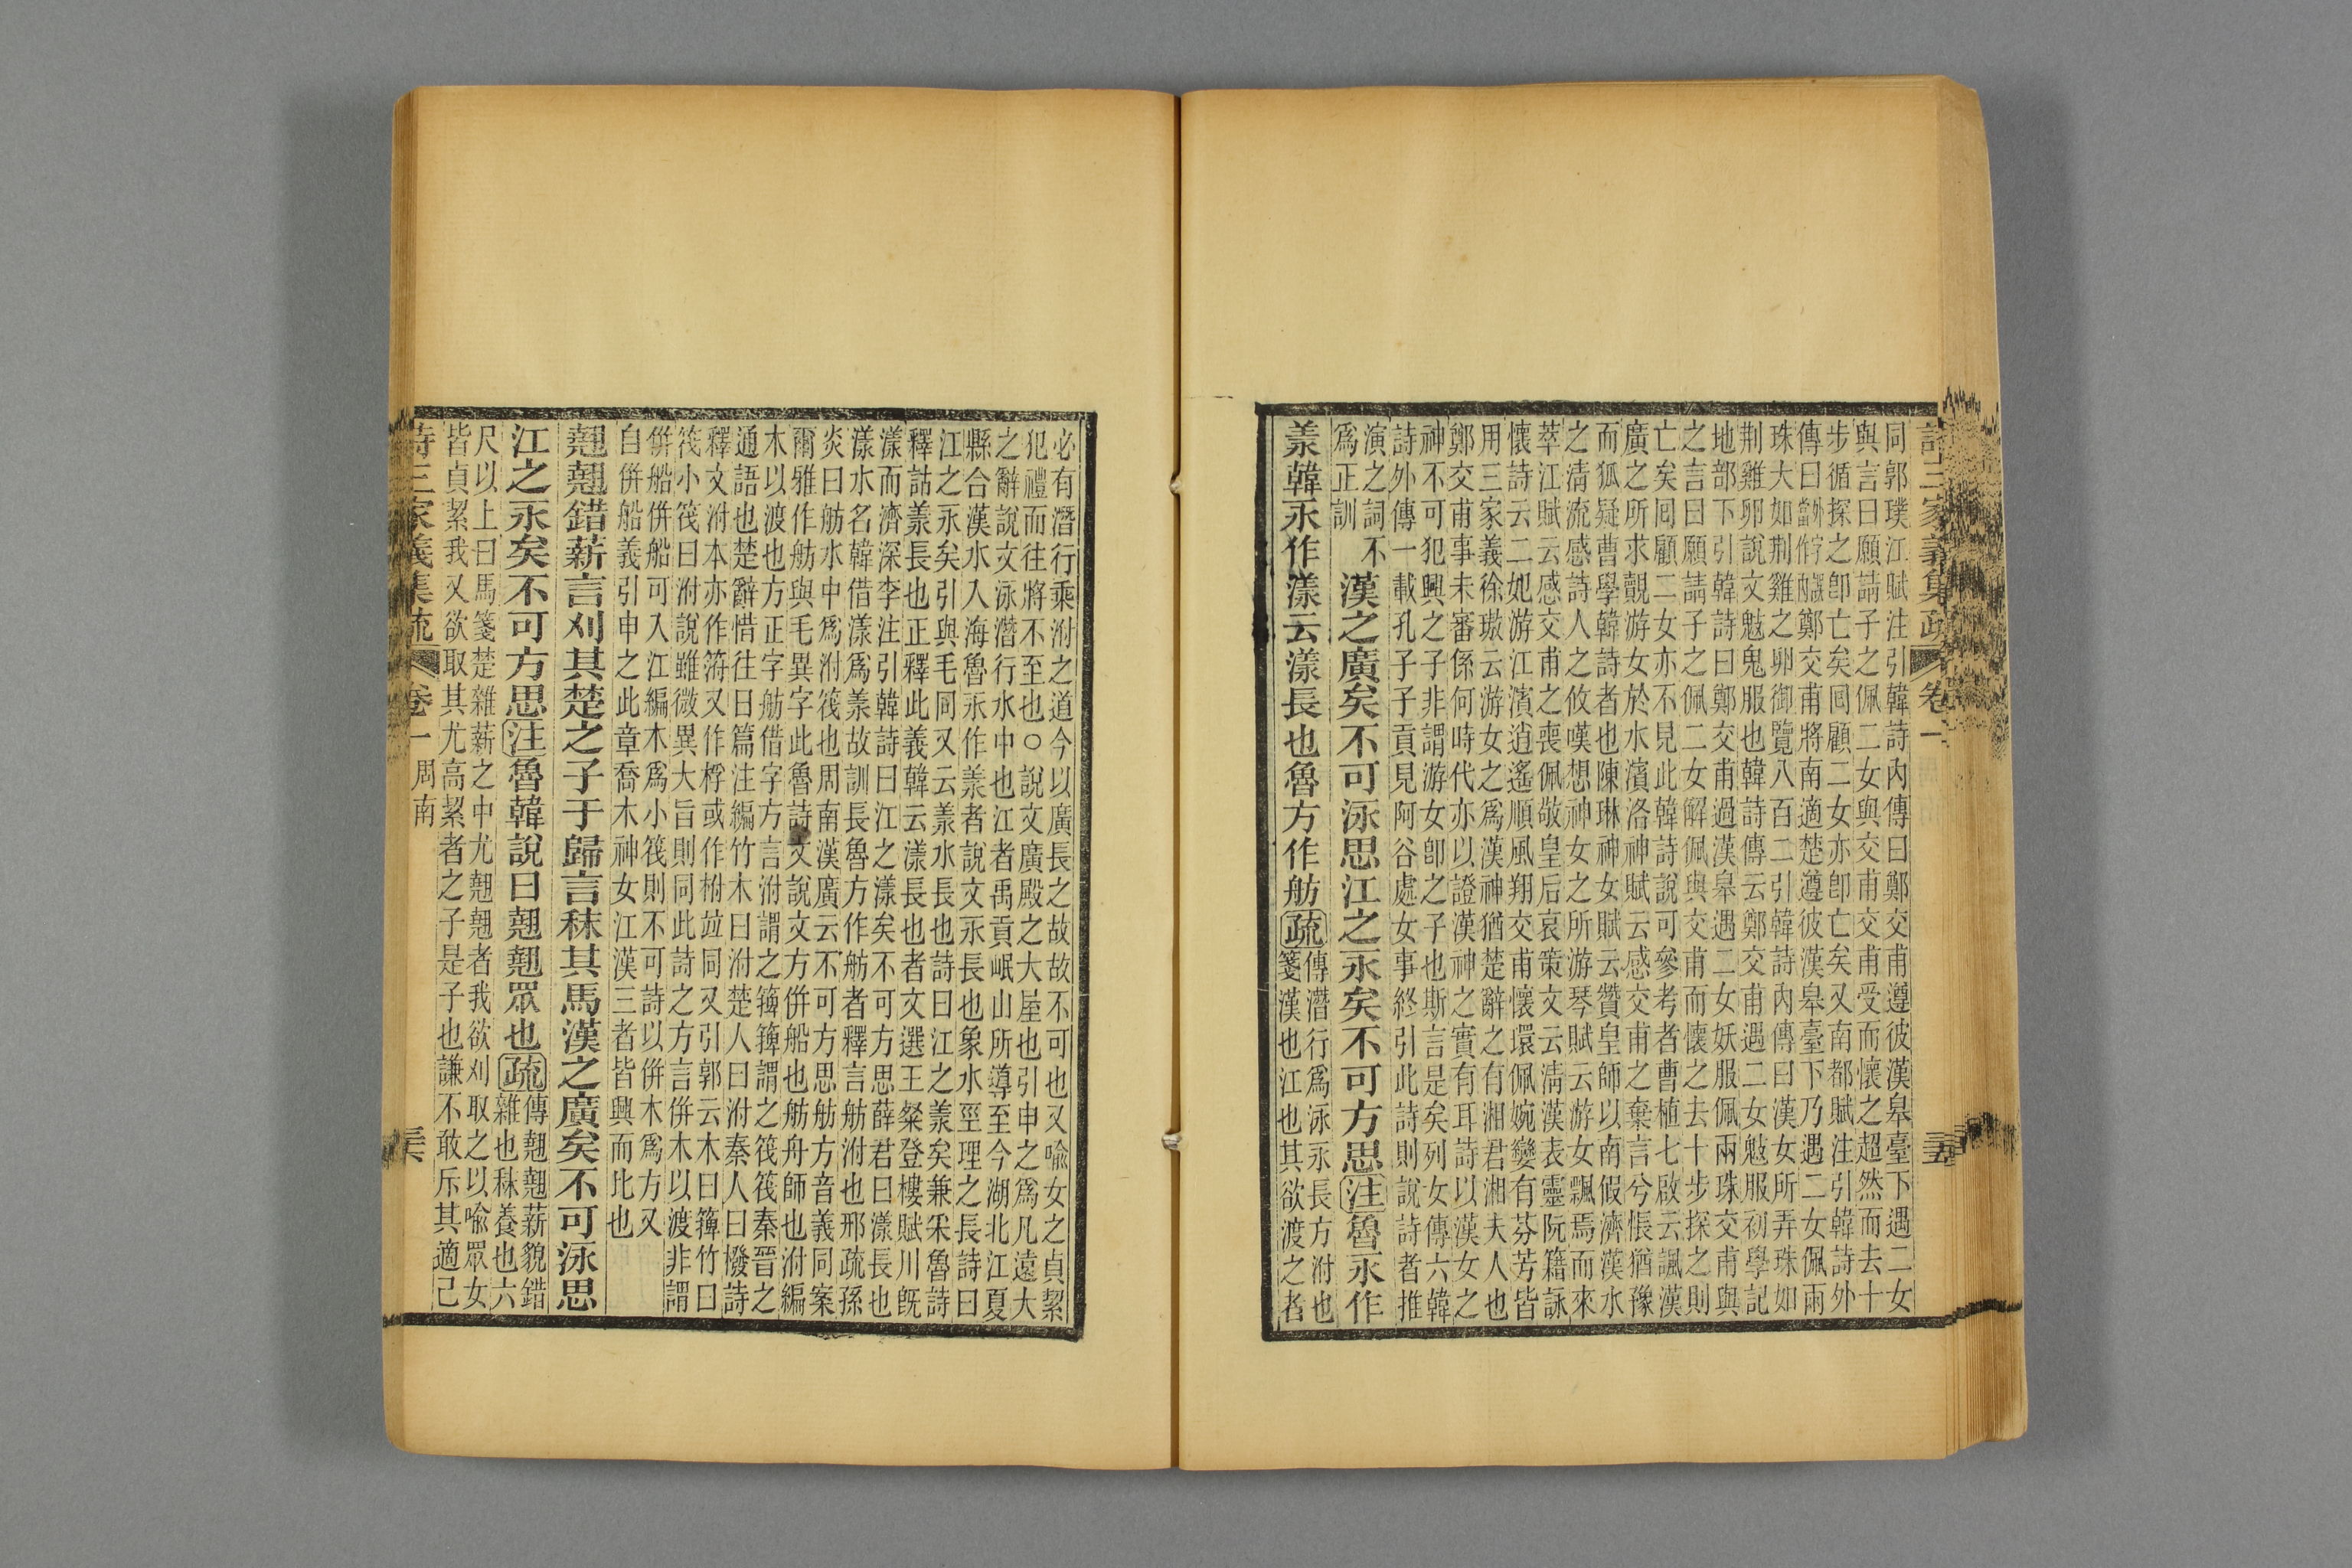 詩三家義集疏 卷一 三五
同郭璞江賦注引韓詩內傳曰鄭交甫遵彼漢皋臺下遇二女
與言曰願請子之佩二女與交甫交甫受而懷之超然而去十
步循探之卽亡矣囘顧二女亦卽亡矣又南都賦注引韓詩外
傳曰鄭交甫將南適楚遵彼漢皋臺下乃遇二女佩兩
珠大如荆雞之卵御覽八百二引韓詩內傳曰漢女所弄珠如
荆雞卵說文鬾鬼服也韓詩傳云鄭交甫遇二女鬾服初學記
地部下引韓詩曰鄭交甫過漢皋遇二女妖服佩兩珠交甫與
之言曰願請子之佩二女解佩與交甫而懷之去十步探之則
亡矣囘顧二女亦不見此韓詩說可參考者曹植七啟云諷漢
廣之所求覿游女於水濱洛神賦云感交甫之棄言兮悵猶豫
而狐疑曹學韓詩者也陳琳神女賦云贊皇師以南假濟漢水
之淸流感詩人之攸嘆想神女之所游琴賦云游女飄焉而來
萃江賦云感交甫之喪佩敬皇后哀策文云淸漢表靈阮籍詠
懷詩云二妃游江濱逍遙順風翔交甫懷環佩婉孌有芬芳皆
用三家義徐璈云游女之爲漢神猶楚辭之有湘君湘夫人也
鄭交甫事未審係何時代亦以證漢神之實有耳詩以漢女之
神不可犯興之子非謂游女卽之子也斯言是矣列女傳六韓
詩外傳一載孔子子貢見阿谷處女事終引此詩則說詩者推
演之詞不
爲正訓
漢之廣矣不可泳思江之永矣不可方思注魯永作
羕韓永作漾云漾長也魯方作舫疏傳潛行爲泳永長方泭也
箋漢也江也其欲渡之者
必有潛行乘泭之道今以廣長之故故不可也又喻女之貞絜
犯禮而往將不至也○說文廣殿之大屋也引申之爲凡遠大
之辭說文泳潛行水中也江者禹貢岷山所導至今湖北江夏
縣合漢水入海魯永作羕者說文永長也象水巠理之長詩曰
江之永矣引與毛同又云羕水長也詩曰江之羕矣兼采魯詩
釋詁羕長也正釋此義韓云漾長也者文選王粲登樓賦川旣
漾而濟深李注引韓詩曰江之漾矣不可方思薛君曰漾長也
漾水名韓借漾爲羕故訓長魯方作舫者釋言舫泭也邢疏孫
炎曰舫水中爲泭筏也周南漢廣云不可方思舫方音義同案
爾雅作舫與毛異字此魯詩文說文方併船也舫舟師也泭編
木以渡也方正字舫借字方言泭謂之䉬䉬謂之筏筏秦晉之
通語也楚辭惜往日篇注編竹木曰泭楚人曰泭秦人曰橃詩
釋文泭本亦作䈬又作桴或作柎竝同又引郭云木曰䉬竹曰
筏小筏曰泭說雖微異大旨則同此詩之方言併木以渡非謂
併船併船可入江編木爲小筏則不可詩以併木爲方又
自併船義引申之此章喬木神女江漢三者皆興而比也
翹翹錯薪言刈其楚之子于歸言秣其馬漢之廣矣不可泳思
江之永矣不可方思注魯韓說曰翹翹眾也疏傳翹翹薪貌錯
雜也秣養也六
尺以上曰馬箋楚雜薪之中尤翹翹者我欲刈取之以喻眾女
皆貞絜我又欲取其尤高絜者之子是子也謙不敢斥其適己
詩三家義集疏 卷一 周南 三六